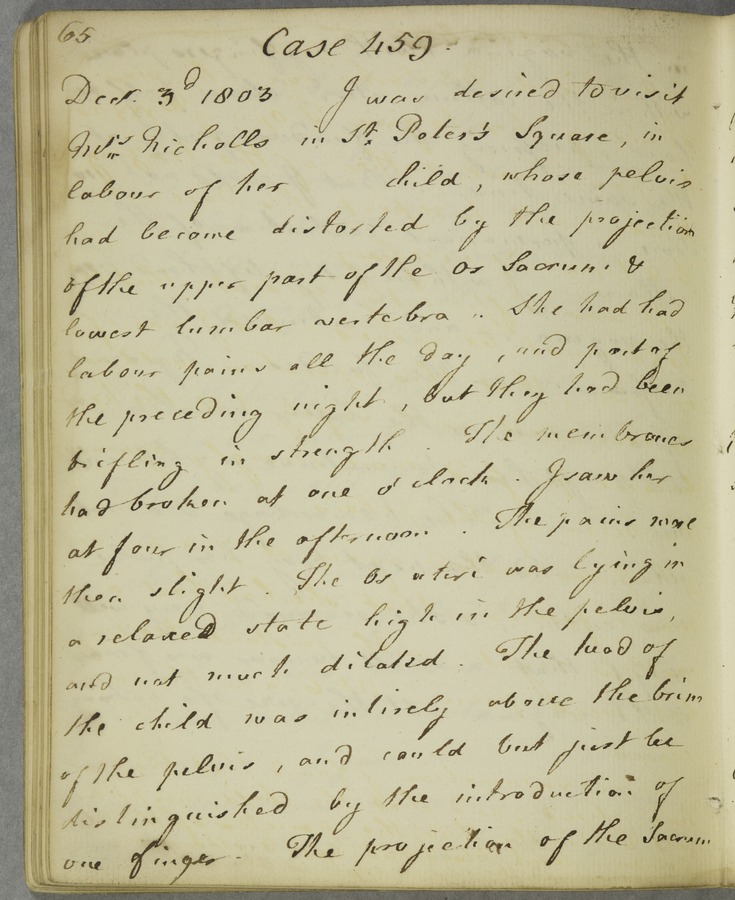 65
Case 459.
Decr. 3d 1803 I was desired to visit
Mrs Nicholls in St. Peter's Square, in
labour of her child, whose pelvis
had become distorted by the projection
of the upper part of the os Sacrum &
lowest lumbar vertebra .. She had had
labour pains all the day, and part of
the preceding night, but they had been
trifling in strength. The membranes
had broken at one o'clock. I saw her
at four in the afternoon. The pains were
then slight. The os uteri was lying in
a relaxed state high in the pelvis,
and not much dilated. The head of
the child was intirely above the brim
of the pelvis, and could but just be
distinguished by the introduction of
one finger. The projection of the Sacrum